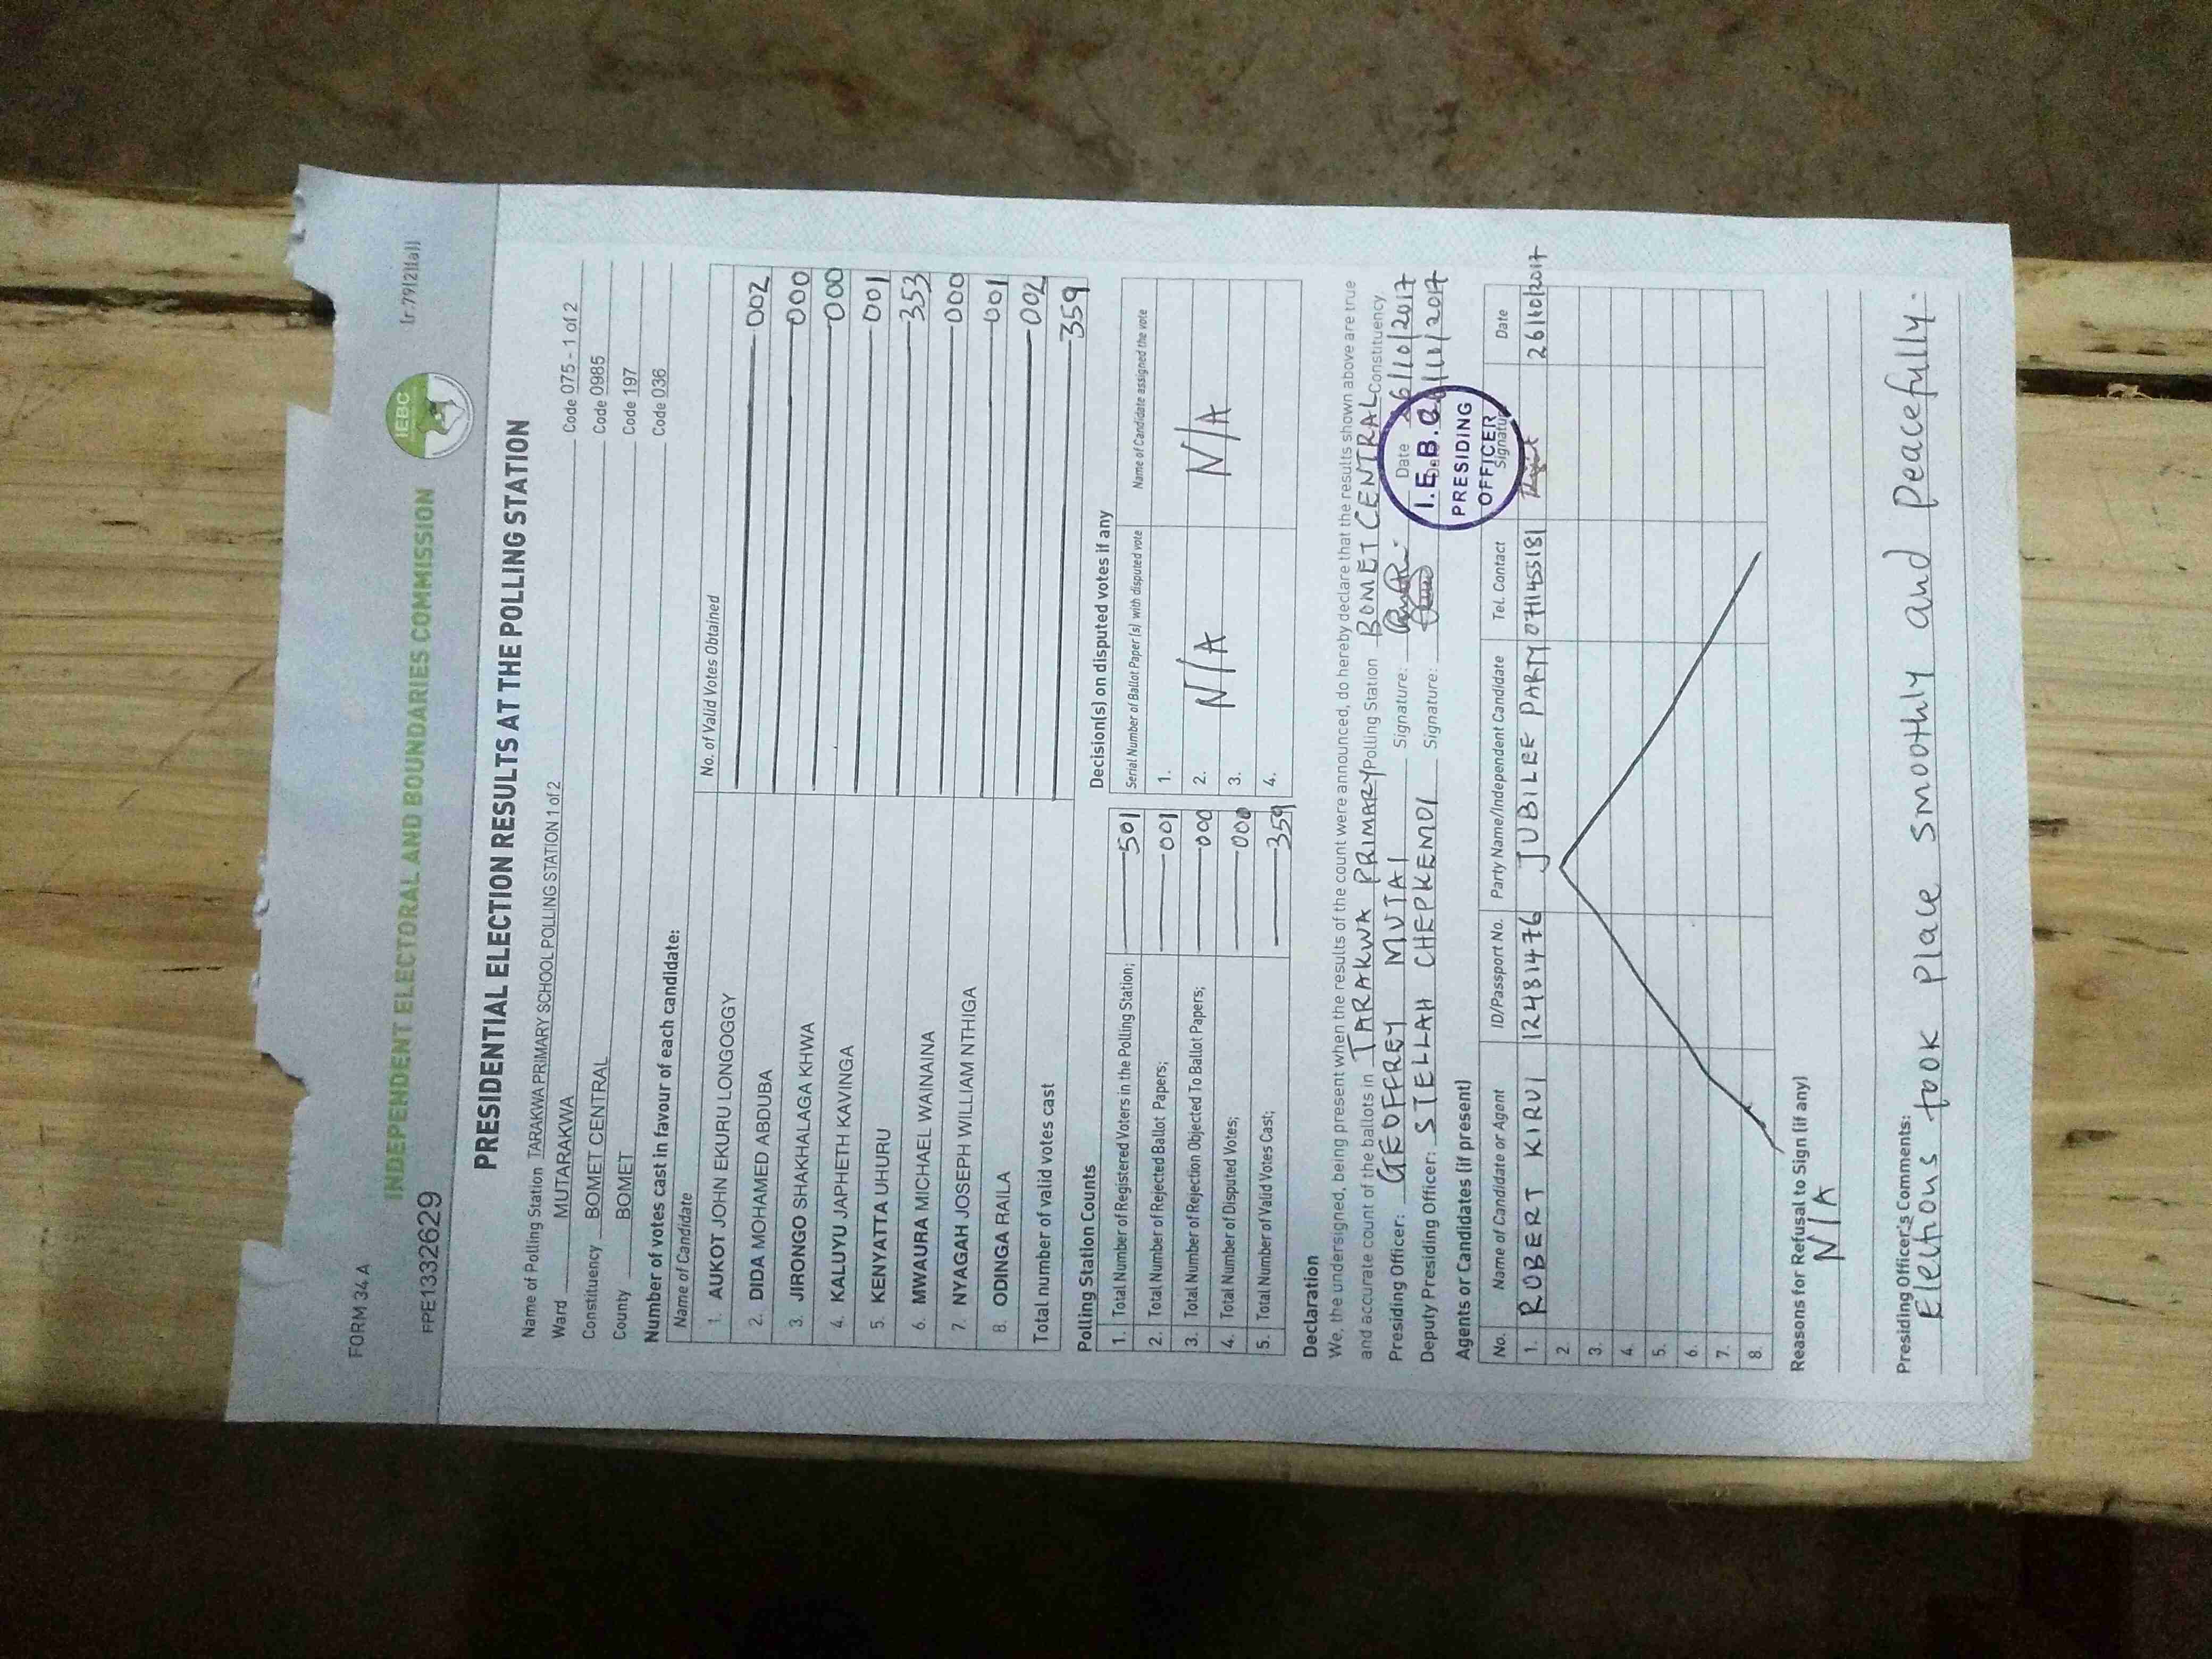 FORM 34 A
Ir.79(2)(a)]
INDEPENDENT ELECTORAL AND BOUNDARIES COMMISSION
IEBC
PPE1332629
PRESIDENTIAL ELECTION RESULTS AT THE POLLING STATION
Name of Polling Station TARAKWA PRIMARY SCHOOL POLLING STATION 1 of 2 Code 075 - 1 of 2
Ward MUTARAKWA Code 0985
Constituency BOMET CENTRAL Code 197
County BOMET Code 036
Number of votes cast in favour of each candidate:
Name of Candidate No. of Valid Votes Obtained
1. AUKOT JOHN EKURU LONGOGGY 002
2. DIDA MOHAMED ABDUBA 000
3. JIRONGO SHAKHALAGA KHWA 000
4. KALUYU JAPHETH KAVINGA 001
5. KENYATTA UHURU 353
6. MWAURA MICHAEL WAINAINA 000
7. NYAGAH JOSEPH WILLIAM NTHIGA 001
8. ODINGA RAILA 002
Total number of valid votes cast 359
Polling Station Counts
1. Total Number of Registered Voters in the Polling Station; 501
2. Total Number of Rejected Ballot Papers; 001
3. Total Number of Rejection Objected To Ballot Papers; 000
4. Total Number of Disputed Votes; 000
5. Total Number of Valid Votes Cast; 359
Decision(s) on disputed votes if any
Serial Number of Ballot Paper(s) with disputed vote Name of Candidate assigned the vote
1.
2. N/A N/A
3.
4.
Declaration
We, the undersigned, being present when the results of the count were announced, do hereby declare that the results shown above are true
and accurate count of the ballots in TARAKWA PRIMARY Polling Station BOMET CENTRAL Constituency.
Presiding Officer: GEOFFREY MUTAI Signature: Date 26/10/2017
Deputy Presiding Officer: STELLAH CHEPKEMOI Signature: /10/2017
I.E.B.C
PRESIDING
OFFICER
Agents or Candidates (if present)
No. Name of Candidate or Agent ID/Passport No. Party Name/Independent Candidate Tel. Contact Signature Date
1. ROBERT KIRUI 12481476 JUBILEE PARTY 0711455181 26/10/2017
2.
3.
4.
5.
6.
7.
8.
Reasons for Refusal to Sign (if any)
N/A
Presiding Officer's Comments:
Elections took place smoothly and peacefully.